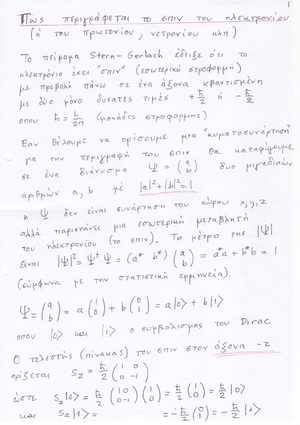 1
Πως περιγράφεται το σπιν του ηλεκτρονίου
(ή του πρωτονίου, νετρονίου κλπ)
Το πείραμα Stern-Gerlach έδειξε ότι το
ηλεκτρόνιο έχει "σπιν" (εσωτερική στροφορμή)
με προβολή πάνω σε ένα άξονα κβαντισμένη
με δύο μόνο δυνατές τιμές +ħ/2 ή -ħ/2
όπου ħ = h/2π (μονάδες στροφορμής)
Εαν θέλουμε να ορίσουμε μια "κυματοσυνάρτηση"
για την περιγραφή του σπιν θα καταφύγουμε
σε ένα διάνυσμα Ψ = (a b) δυο μιγαδικών
αριθμών a, b με |a|²+|b|²=1
η Ψ δεν είναι συνάρτηση του χώρου x,y,z
αλλά παριστάνει μια εσωτερική μεταβλητή
του ηλεκτρονίου (το σπιν). Το μέτρο της |Ψ|
είναι |Ψ|² = Ψ†Ψ = (a* b*) (a b) = a*a + b*b = 1
(σύμφωνα με την στατιστική ερμηνεία).
Ψ = (a b) = a (1 0) + b (0 1) = a|0> + b|1>
όπου |0> και |1> ο συμβολισμος του Dirac
Ο τελεστής (πίνακας) του σπιν στον άξονα -z
ορίζεται S_z = ħ/2 (1 0 0 -1)
ώστε S_z|0> = ħ/2 (1 0 0 -1) (1 0) = ħ/2 (1 0) = ħ/2 |0>
και S_z|1> = = -ħ/2 (0 1) = -ħ/2 |1>